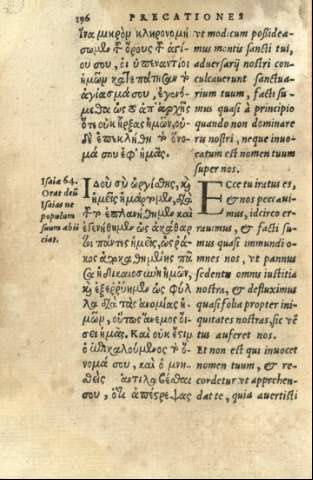 196 PRECATIONES
ἵνα μικρὸν κληρονομή
σωμεν τ ὄρους τ ἁγί
ου σου, οἱ ὑπεναντίοι
ἡμῶν κατεπάτησαν τ
ἁγίασμά σου, ἐγενό
μεθα ὡς τ ἀπ' ἀρχῆς
ὅτε οὐκ ἦρξας ἡμῶν, οὐ
δὲ ἐπεκλήθη τ ὄνο-
μά σου ἐφ' ἡμᾶς.
ut modicum possidea-
mus montis sancti tui,
adversarij nostri con-
culcaverunt sanctua-
rium tuum, facti su-
mus quasi à principio
quando non dominare
ris nostri, neque invo-
catum est nomen tuum
super nos.
Isaiæ 64.
Orat deũ
Isaias ne
populum
suum abii
ciat.
Ἰδοὺ σὺ ὠργίσθης, καὶ
ἡμεῖς ἡμάρτομεν, διὰ
τ ἐπλανήθημεν καὶ
ἐγενήθημεν ὡς ἀκάθαρ
τοι πάντες ἡμεῖς, ὡς ῥά-
κος ἀποκαθημένης πᾶ
σα ἡ δικαιοσύνη ἡμῶν,
καὶ ἐξερρύημεν ὡς φύλ
λα διὰ τὰς ἀνομίας ἡ-
μῶν, οὕτως ἄνεμος οἴ-
σει ἡμᾶς. Καὶ οὐκ ἔστιν
ὁ ἐπικαλούμενος τ ὄ
νομά σου, καὶ ὁ μνη-
σθεὶς ἀντιλαβέσθαι
σου, ὅτι ἀπέστρεψας
Ecce tu iratus es,
& nos peccavi-
mus, idcirco er-
ravimus, & facti su-
mus quasi immundi o-
mnes nos, ut pannus
sedentis omnis iustitia
nostra, & defluximus
quasi folia propter ini-
quitates nostras, sic vẽ
tus auferet nos.
Et non est qui invocet
nomen tuum, & re-
cordetur ut apprehen-
dat te, quia avertisti